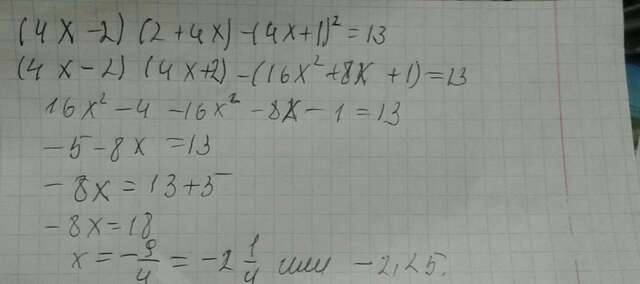 (4x-2)(2+4x)-(4x+1)²=13
(4x-2)(4x+2)-(16x²+8x+1)=13
16x²-4-16x²-8x-1=13
-5-8x=13
-8x=13+5
-8x=18
x=-9/4=-2 1/4 или -2,25.